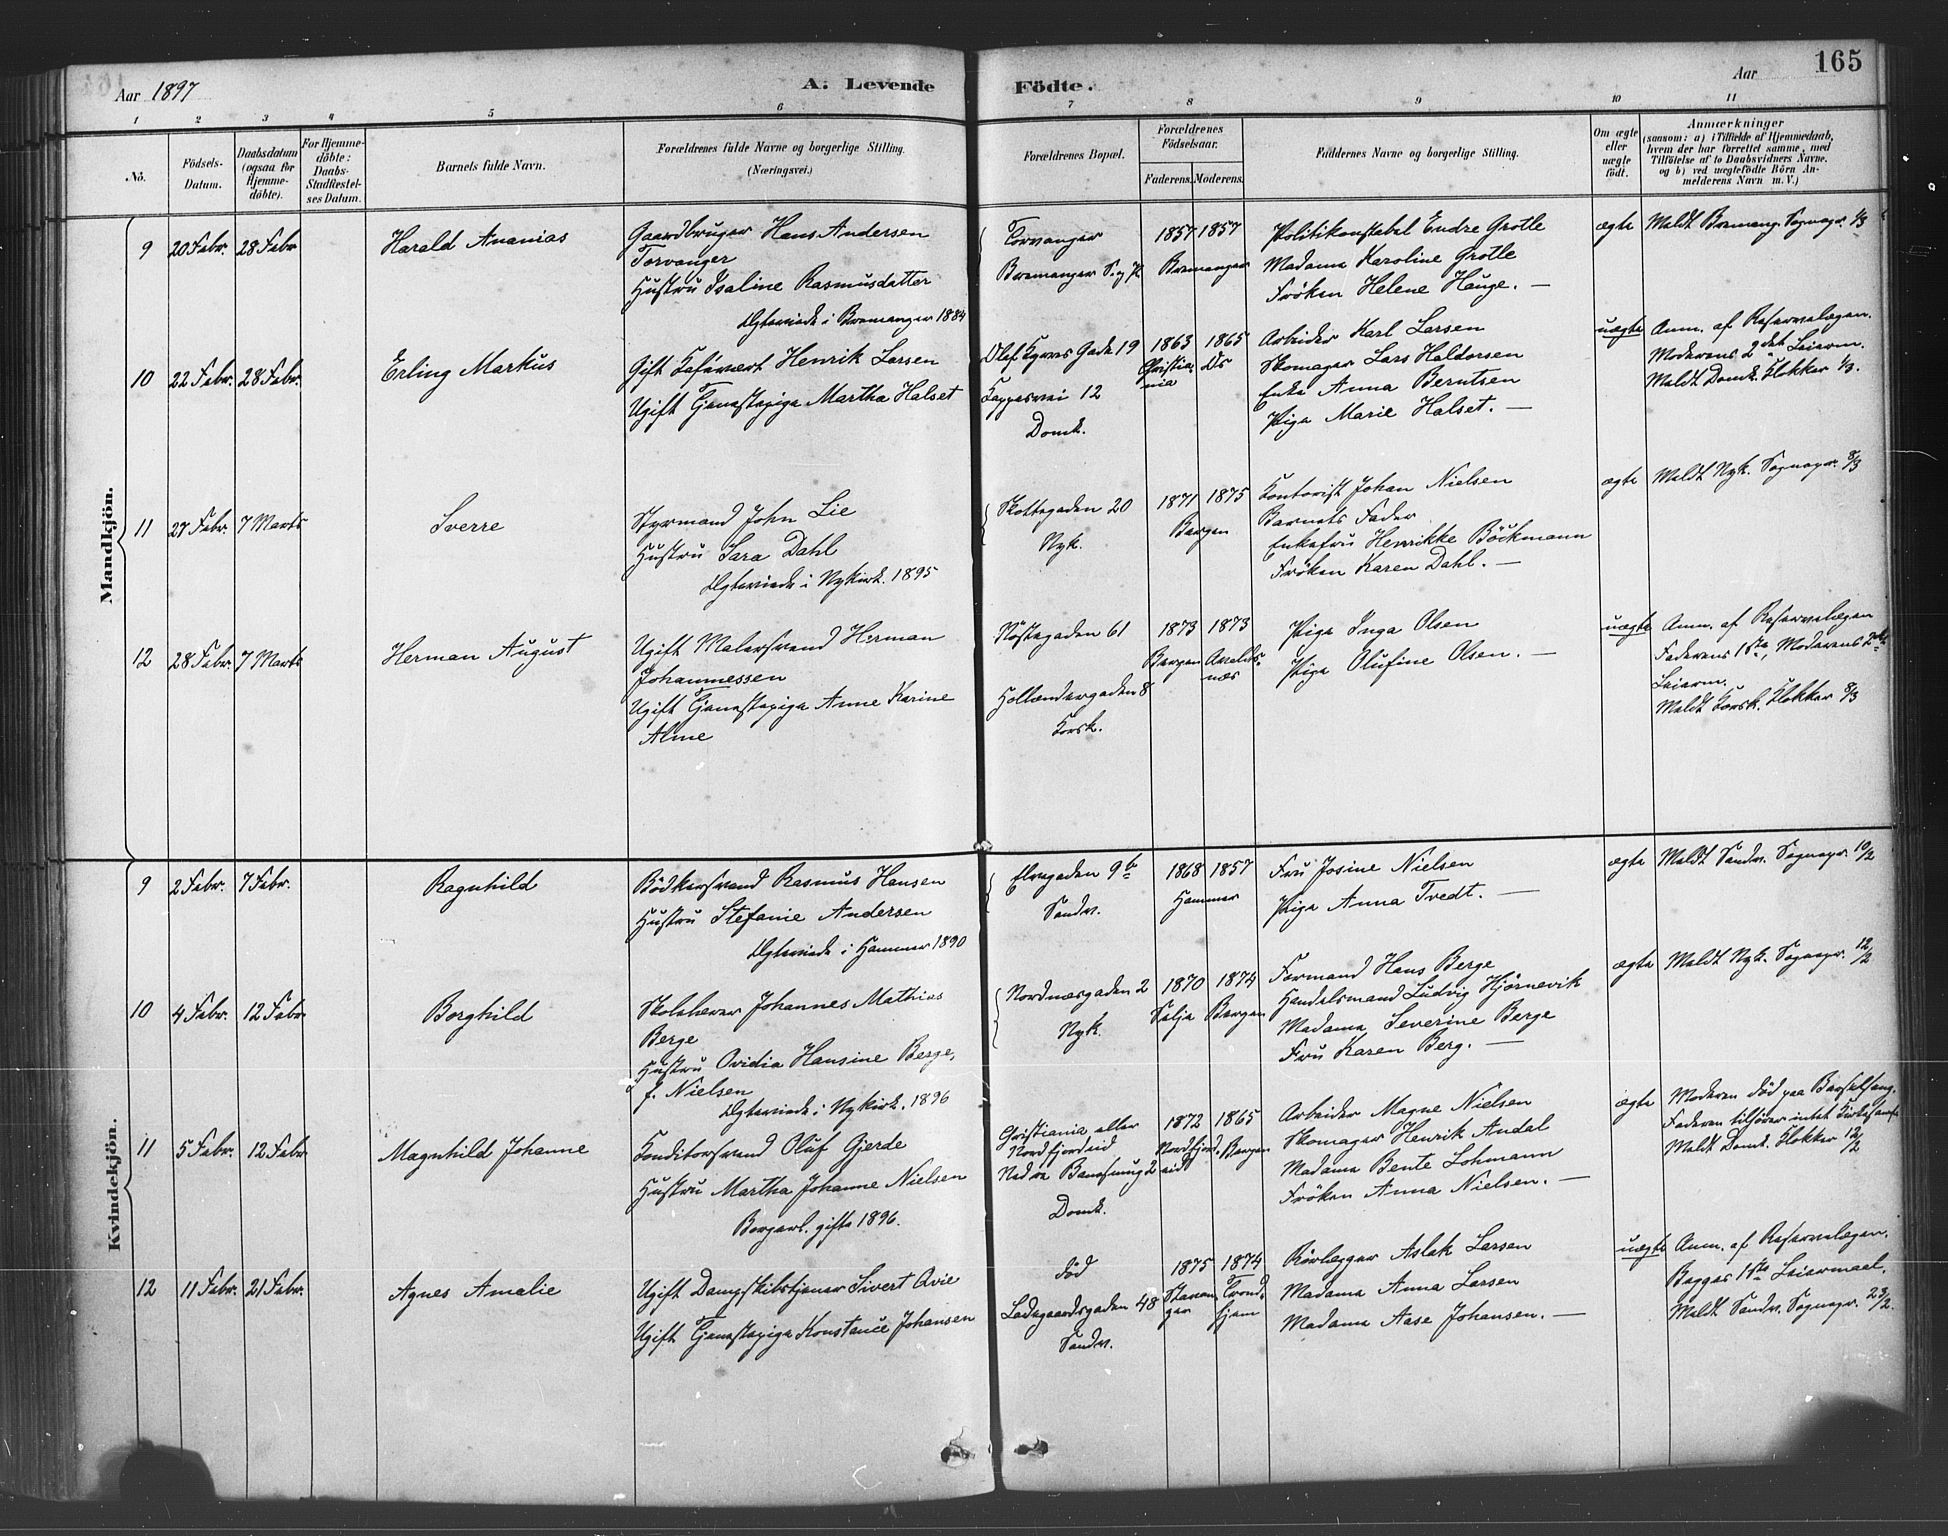 Aar 1897
A. Levende
Födte.
Aar
165
1 2 3 4 5 6 7 8 9 10 11
No.
Födsels-
Datum.
Daabsdatum
(ogsaa for
Hjemme-
döbte).
For Hjemme-
döbte:
Daabs-
Stadfæstel-
ses Datum.
Barnets fulde Navn.
Forældrenes fulde Navne og borgerlige Stilling.
(Næringsvei.)
Forældrenes Bopæl.
Forældrenes
Födselsaar.
Faderens. Moderens.
Faddernes Navne og borgerlige Stilling.
Om ægte
eller
uægte
födt.
Anmærkninger
(saasom: a) i Tilfælde af Hjemmedaab,
hvem der har forrettet samme, med
Tilföielse af to Daabsvidners Navne,
og b) ved uægtefödte Börn An-
melderens Navn m. V.)
Mandkjön.
9 20 Febr. 28 Febr Harald Ananias
Gaardbruger Hans Andersen
Torvanger
Hustru Isaline Rasmusdatter
Ægteviede i Bremanger 1884
Torvanger
Bremanger S. og P.
1857 1857
Bremanger
Politikonstabel Endre Grotle
Madame Karoline Grotle
Frøken Helene Hauge. —
ægte
Meldt Bremang. Sognepr. 1/3
10 22 Febr. 28 Febr. Erling Markus
Gift Kafévært Henrik Larsen
Ugift Tjenestepige Martha Halset
Olef Kyrres Gade 19
Kappevei 12
Domk.
1863 1865
Christia-
nia
Ds
Arbeider Karl Larsen
Skomager Lars Haldorsen
Enke Anna Berntsen
Pige Marie Halset. —
uægte
Anm. af Reservelægen.
Moderens 2det Leierm.
Meldt Domk. Klokker 1/3.
11 27 Febr. 7 Marts Sverre
Styrmand John Lie
Hustru Sara Dahl
Ægteviede i Nykirk. 1895
Skottegaden 20
Nyk.
1871 1875
Bergen
Kontorist Johan Nielsen
Barnets Fader
Enkefru Henrikke Böckmann
Frøken Karen Dahl. —
ægte
Meldt Nyk. Sognepr. 8/3
12 28 Febr. 7 Marts Herman August
Ugift Malersvend Herman
Johannessen
Ugift Tjenestepige Anne Karine
Alme
Nøstegaden 61
Hollændergaden 8
Korsk.
1873 1873
Bergen Avalds-
næs
Pige Inga Olsen
Pige Olufine Olsen. —
uægte
Anm. af Reservelægen
Faderens 1ste, Moderens 2det
Leierm.
Meldt Korsk. Klokker 8/3
Kvindekjön.
9 2 Febr. 7 Febr. Ragnhild
Bödkersvend Rasmus Hansen
Hustru Stefanie Andersen
Ægteviede i Hammer 1890
Elvegaden 9b
Sandv.
1868 1857
Hammer
Fru Josine Nielsen
Pige Anna Tvedt. —
ægte
Meldt Sandv. Sognepr. 10/2
10 4 Febr. 12 Febr Borghild
Skolelærer Johannes Mathias
Berge
Hustru Ovidia Hansine Berge,
f. Nielsen
Ægteviede i Nykirk. 1896
Nordnæsgaden 2
Nyk.
1870 1874
Selje Bergen
Formand Hans Berge
Handelsmand Ludvig Hjörnevik
Madame Severine Berge
Fru Karen Berg. —
ægte
Meldt Nyk. Sognepr. 12/2
11 5 Febr. 12 Febr Magnhild Johanne
Konditorsvend Oluf Gjerde
Hustru Martha Johanne Nielsen
Borgerl. gifte 1896.
Christiania eller
Nordfjordeid
Nedre Banesmug 2
Domk.
1872 1865
Nordfjord-
eid
Bergen
Arbeider Magne Nielsen
Skomager Henrik Andal
Madame Bente Lohmann
Frøken Anna Nielsen. —
ægte
Moderen død paa Barselseng.
Faderen tilhører intet Kirkesamf.
Meldt Domk. Klokker 12/2
12 11 Febr. 21 Febr. Agnes Amalie
Ugift Dampskibstjener Sivert Avie
Ugift Tjenestepige Konstance Johansen
død
Ladegaardsgaden 48
Sandv.
1875 1874
Stavan-
ger
Trond-
hjem
Rörlægger Aslak Larsen
Madame Anna Larsen
Madame Aase Johansen. —
uægte
Anm. af Reservelægen.
Begges 1ste Leiermaal.
Meldt Sandv. Sognepr. 23/2.